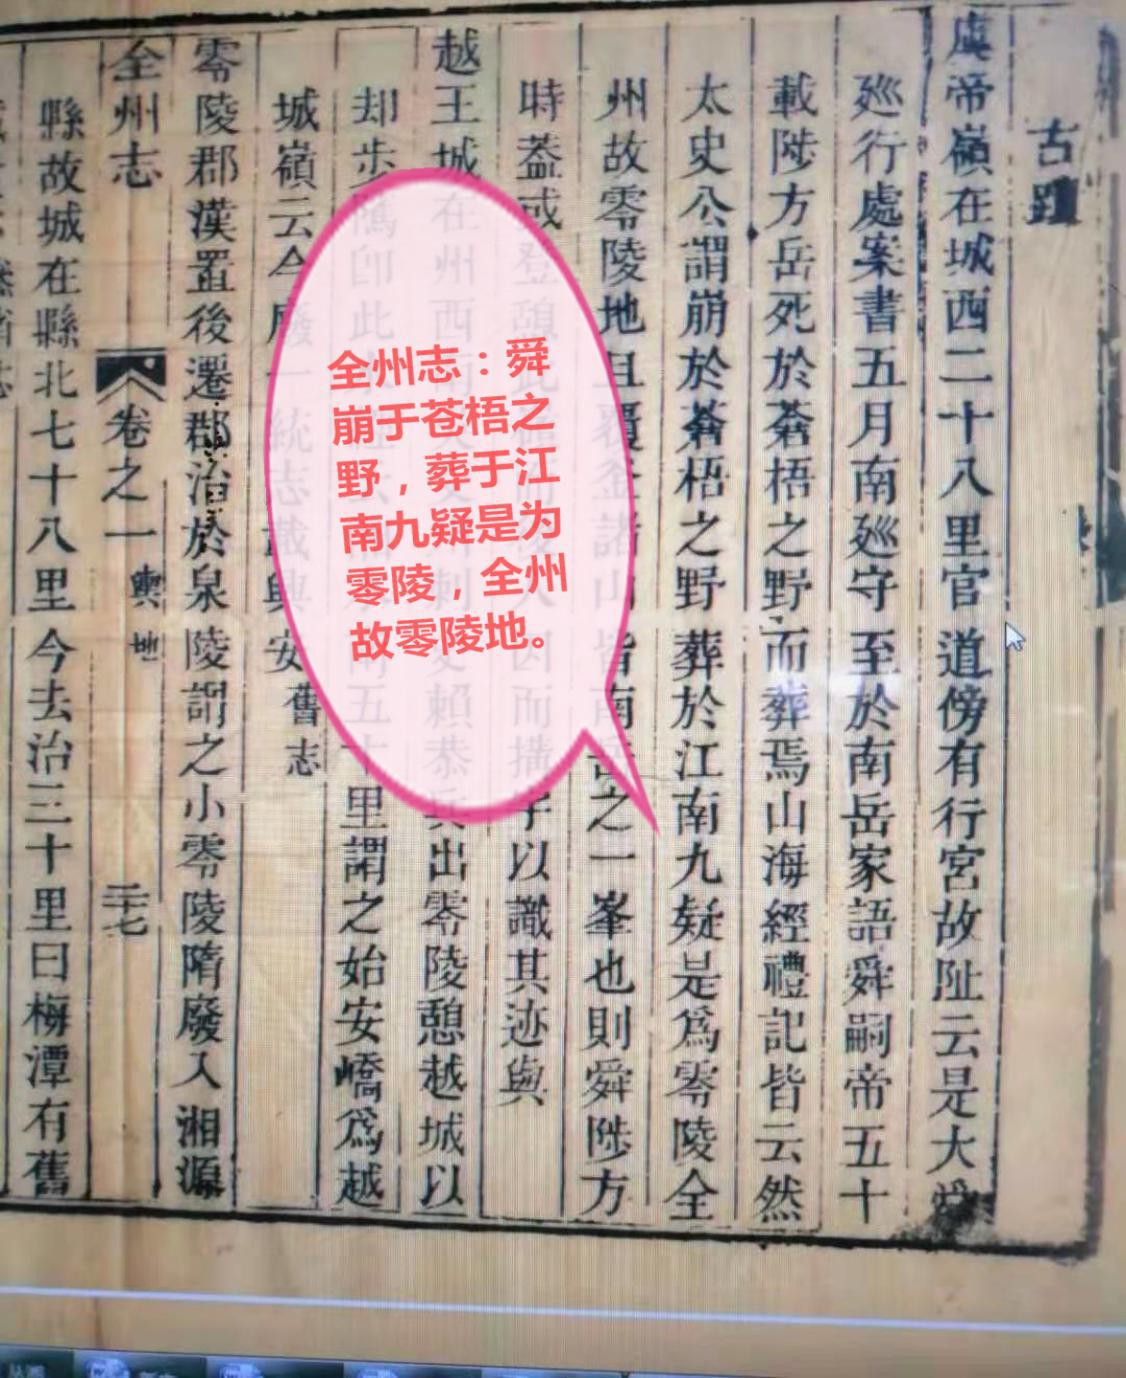 古蹟
虞帝嶺在城西二十八里官道傍有行宮故阯云是大舜
廵行處案書五月南廵守至於南岳家語舜嗣帝五十
載陟方岳死於蒼梧之野而葬焉山海經禮記皆云然
太史公謂崩於蒼梧之野葬於江南九疑是爲零陵全
州故零陵地且覆釜諸山皆南岳之一峯也則舜陟方
時蓋或登憩此而後人因而搆宇以識其迹與
越王城在州西南刺史賴恭兵出零陵憩越城以
却步隲卽此五十里謂之始安嶠爲越
城嶺云今廢一統志載興安舊志
零陵郡漢置後遷郡治於泉陵謂之小零陵隋廢入湘源
全州志 卷之一 輿地 二十七
縣故城在縣北七十八里今去治三十里曰梅潭有舊
全州志：舜
崩于苍梧之
野，葬于江
南九疑是为
零陵，全州
故零陵地。